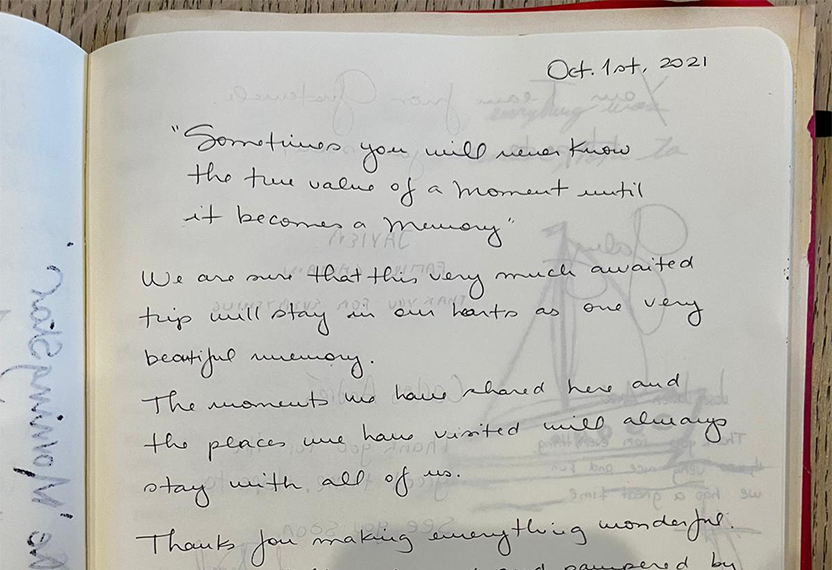 Oct. 1st, 2021
"Sometimes you will never know
the true value of a moment until
it becomes a memory"
We are sure that this very much awaited
trip will stay in our hearts as one very
beautiful memory.
The moments we have shared here and
the places we have visited will always
stay with all of us.
Thanks you making everything wonderful.
and pampered by